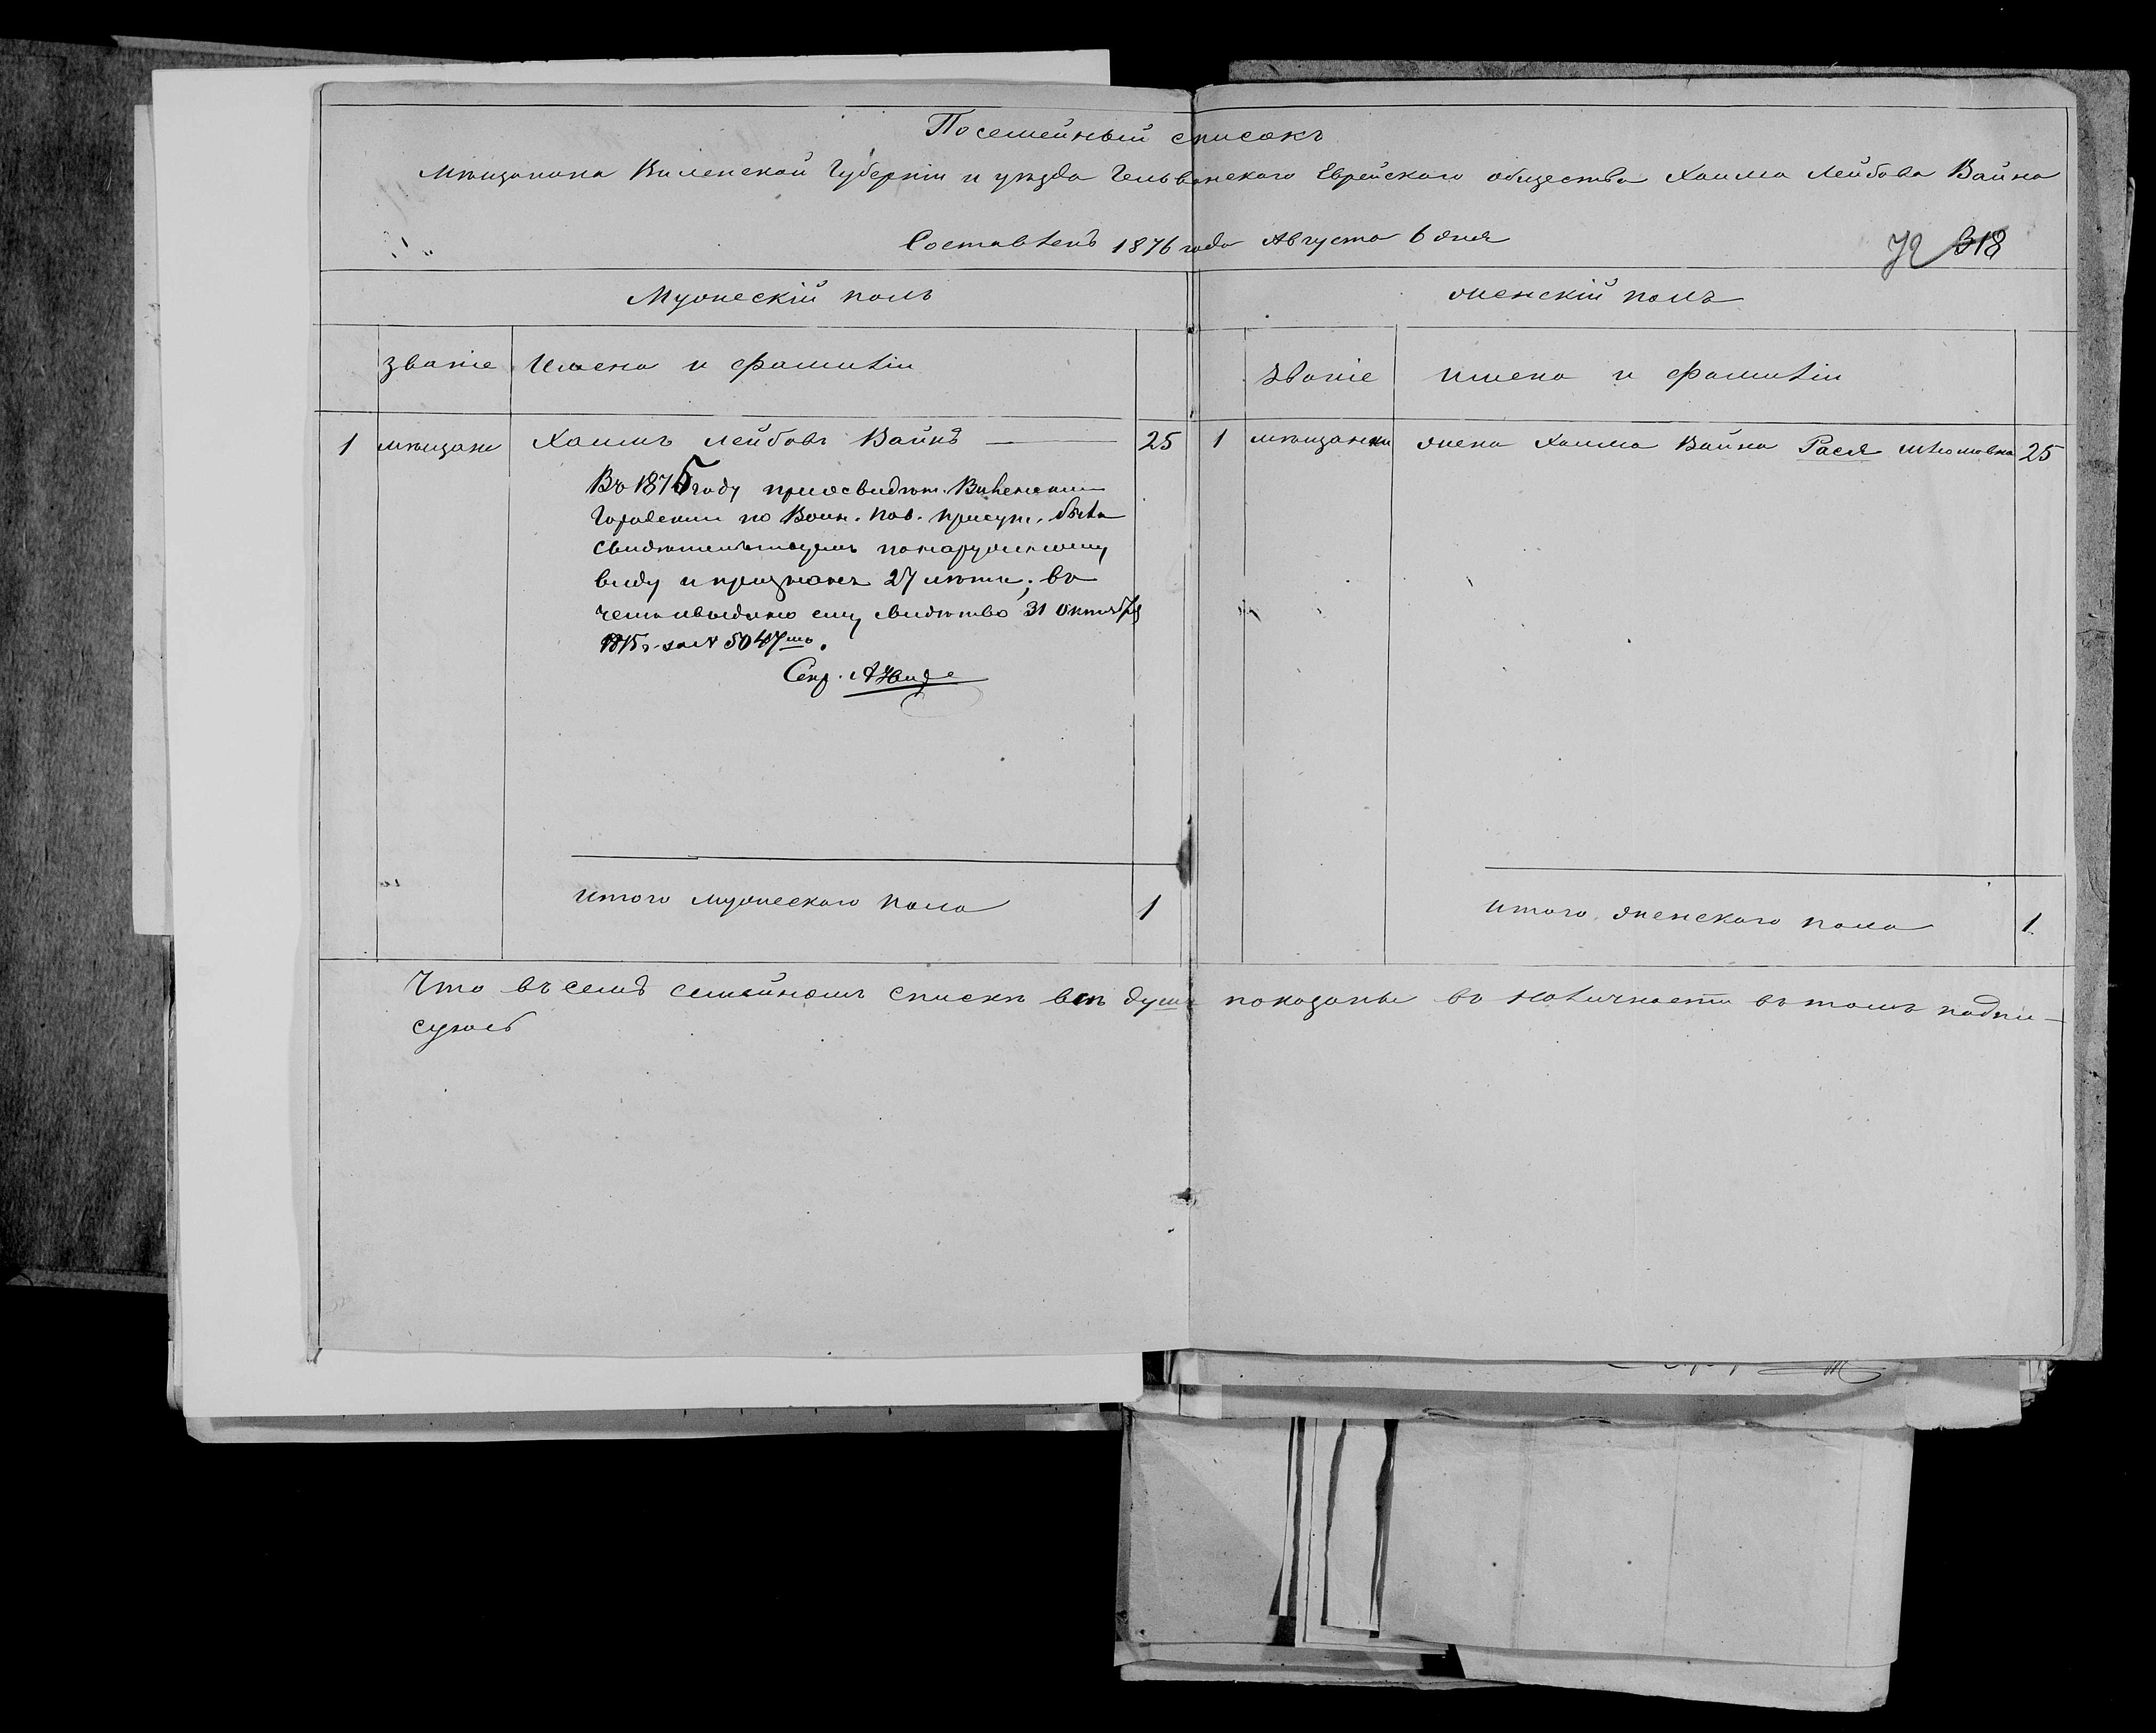 Посемейный списокъ
Мѣщанина Виленской Губерніи и уѣзда Гельванского Еврейского общества Хаима Лейбова Вайна
Составленъ 1876 года Августа 6 дня
72 318
Мужескій полъ
женскій полъ
званіе Имена и фамиліи
званіе имена и фамиліи
1 мѣщане Хаимъ Лейбовъ Вайнъ 25
1 мѣщанки жена Хаима Вайна Рася Шломовна 25
Въ 1875 году при освидѣт. Виленскимъ
Городскимъ по Воин. пов. присут. былъ
свидѣтельствуемъ по наружному
виду и признанъ 27 лѣтъ; въ
чемъ и выдано ему свидѣтство 31 Октября
1875 г. за N 5047мъ.
Секр.
итого мужеского пола 1
итого женского пола 1
Что въ семъ семейномъ списки всѣ души показаны въ наличности въ томъ подпи-
суюсь